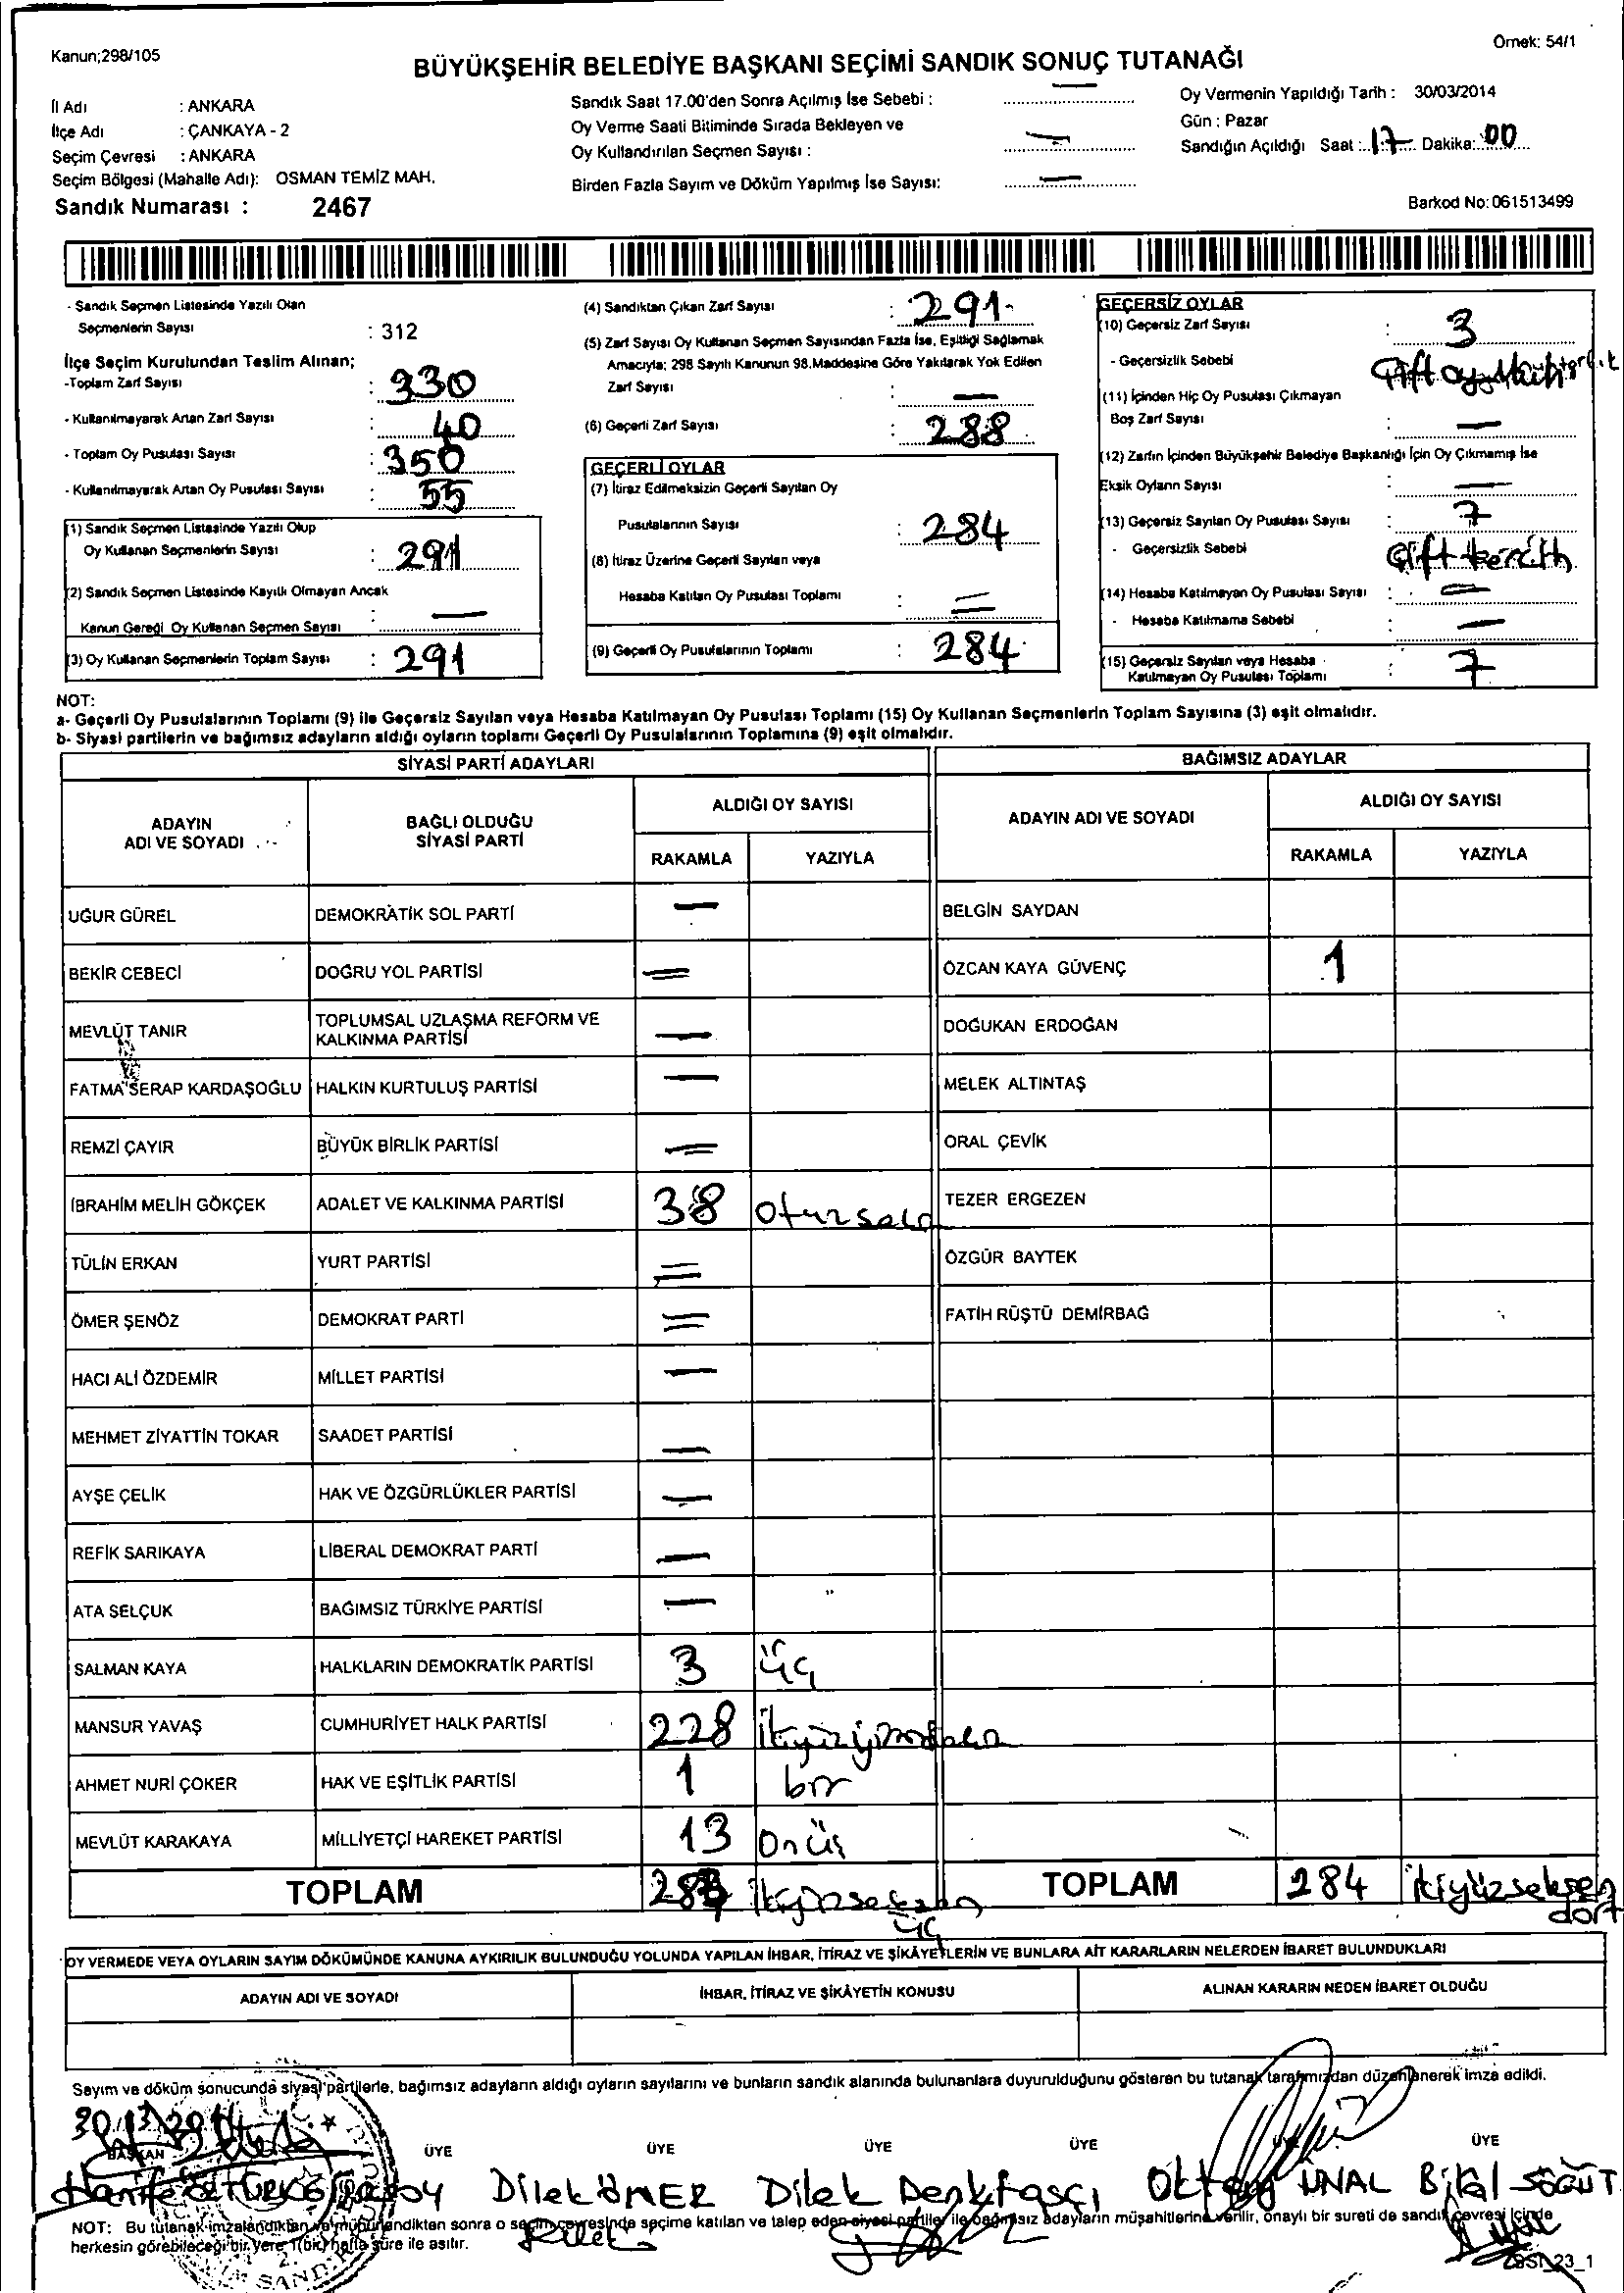 Kanun;298/105
Örnek: 54/1
BÜYÜKŞEHİR BELEDİYE BAŞKANI SEÇİMİ SANDIK SONUÇ TUTANAĞI
İl Adı : ANKARA
İlçe Adı : ÇANKAYA - 2
Seçim Çevresi : ANKARA
Seçim Bölgesi (Mahalle Adı): OSMAN TEMİZ MAH.
Sandık Numarası : 2467
Sandık Saat 17.00'den Sonra Açılmış İse Sebebi : —
Oy Verme Saati Bitiminde Sırada Bekleyen ve
Oy Kullandırılan Seçmen Sayısı : —
Birden Fazla Sayım ve Döküm Yapılmış İse Sayısı: —
Oy Vermenin Yapıldığı Tarih : 30/03/2014
Gün : Pazar
Sandığın Açıldığı Saat : 17 Dakika: 00
Barkod No: 061513499
- Sandık Seçmen Listesinde Yazılı Olan
Seçmenlerin Sayısı : 312
İlçe Seçim Kurulundan Teslim Alınan;
-Toplam Zarf Sayısı : 330
- Kullanılmayarak Artan Zarf Sayısı : 40
- Toplam Oy Pusulası Sayısı : 350
- Kullanılmayarak Artan Oy Pusulası Sayısı : 55
(1) Sandık Seçmen Listesinde Yazılı Olup
Oy Kullanan Seçmenlerin Sayısı : 291
(2) Sandık Seçmen Listesinde Kayıtlı Olmayan Ancak
Kanun Gereği Oy Kullanan Seçmen Sayısı : —
(3) Oy Kullanan Seçmenlerin Toplam Sayısı : 291
(4) Sandıktan Çıkan Zarf Sayısı : 291
(5) Zarf Sayısı Oy Kullanan Seçmen Sayısından Fazla İse, Eşitliği Sağlamak
Amacıyla; 298 Sayılı Kanunun 98.Maddesine Göre Yakılarak Yok Edilen
Zarf Sayısı : —
(6) Geçerli Zarf Sayısı : 288
GEÇERLİ OYLAR
(7) İtiraz Edilmeksizin Geçerli Sayılan Oy
Pusulalarının Sayısı : 284
(8) İtiraz Üzerine Geçerli Sayılan veya
Hesaba Katılan Oy Pusulası Toplamı : =
(9) Geçerli Oy Pusulalarının Toplamı : 284
GEÇERSİZ OYLAR
(10) Geçersiz Zarf Sayısı : 3
- Geçersizlik Sebebi Çift oy
(11) İçinden Hiç Oy Pusulası Çıkmayan
Boş Zarf Sayısı : —
(12) Zarfın İçinden Büyükşehir Belediye Başkanlığı İçin Oy Çıkmamış İse
Eksik Oyların Sayısı : —
(13) Geçersiz Sayılan Oy Pusulası Sayısı : 7
- Geçersizlik Sebebi Çift tercih
(14) Hesaba Katılmayan Oy Pusulası Sayısı : =
- Hesaba Katılmama Sebebi : —
(15) Geçersiz Sayılan veya Hesaba
Katılmayan Oy Pusulası Toplamı : 7
NOT:
a- Geçerli Oy Pusulalarının Toplamı (9) ile Geçersiz Sayılan veya Hesaba Katılmayan Oy Pusulası Toplamı (15) Oy Kullanan Seçmenlerin Toplam Sayısına (3) eşit olmalıdır.
b- Siyasi partilerin ve bağımsız adayların aldığı oyların toplamı Geçerli Oy Pusulalarının Toplamına (9) eşit olmalıdır.
SİYASİ PARTİ ADAYLARI
BAĞIMSIZ ADAYLAR
ADAYIN ADI VE SOYADI
BAĞLI OLDUĞU SİYASİ PARTİ
ALDIĞI OY SAYISI
RAKAMLA YAZIYLA
ADAYIN ADI VE SOYADI
ALDIĞI OY SAYISI
RAKAMLA YAZIYLA
UĞUR GÜREL DEMOKRATİK SOL PARTİ — BELGİN SAYDAN
BEKİR CEBECİ DOĞRU YOL PARTİSİ = ÖZCAN KAYA GÜVENÇ 1
MEVLÜT TANIR TOPLUMSAL UZLAŞMA REFORM VE KALKINMA PARTİSİ — DOĞUKAN ERDOĞAN
FATMA SERAP KARDAŞOĞLU HALKIN KURTULUŞ PARTİSİ — MELEK ALTINTAŞ
REMZİ ÇAYIR BÜYÜK BİRLİK PARTİSİ = ORAL ÇEVİK
İBRAHİM MELİH GÖKÇEK ADALET VE KALKINMA PARTİSİ 38 TEZER ERGEZEN
TÜLİN ERKAN YURT PARTİSİ = ÖZGÜR BAYTEK
ÖMER ŞENÖZ DEMOKRAT PARTİ = FATİH RÜŞTÜ DEMİRBAĞ
HACI ALİ ÖZDEMİR MİLLET PARTİSİ —
MEHMET ZİYATTİN TOKAR SAADET PARTİSİ —
AYŞE ÇELİK HAK VE ÖZGÜRLÜKLER PARTİSİ —
REFİK SARIKAYA LİBERAL DEMOKRAT PARTİ —
ATA SELÇUK BAĞIMSIZ TÜRKİYE PARTİSİ —
SALMAN KAYA HALKLARIN DEMOKRATİK PARTİSİ 3 üç
MANSUR YAVAŞ CUMHURİYET HALK PARTİSİ 228
AHMET NURİ ÇOKER HAK VE EŞİTLİK PARTİSİ 1 bir
MEVLÜT KARAKAYA MİLLİYETÇİ HAREKET PARTİSİ 13 Onüç
TOPLAM 283 ikiyüzseksen üç TOPLAM 284 ikiyüzseksen dört
OY VERMEDE VEYA OYLARIN SAYIM DÖKÜMÜNDE KANUNA AYKIRILIK BULUNDUĞU YOLUNDA YAPILAN İHBAR, İTİRAZ VE ŞİKÂYETLERİN VE BUNLARA AİT KARARLARIN NELERDEN İBARET BULUNDUKLARI
ADAYIN ADI VE SOYADI
İHBAR, İTİRAZ VE ŞİKÂYETİN KONUSU
ALINAN KARARIN NEDEN İBARET OLDUĞU
Sayım ve döküm sonucunda siyasi partilerle, bağımsız adayların aldığı oyların sayılarını ve bunların sandık alanında bulunanlara duyurulduğunu gösteren bu tutanak tarafımızdan düzenlenerek imza edildi.
BAŞKAN ÜYE ÜYE ÜYE ÜYE ÜYE
Hanife Dilek ÖMER Dilek Denktaşçı Oktay ÜNAL Bilal SÖĞÜT
NOT: Bu tutanak imzalandıktan ve mühürlendikten sonra o seçim çevresinde seçime katılan ve talep eden siyasi partiler ile bağımsız adayların müşahitlerine verilir, onaylı bir sureti de sandık çevresi içinde
herkesin görebileceği bir yere 1(bir) hafta süre ile asılır.